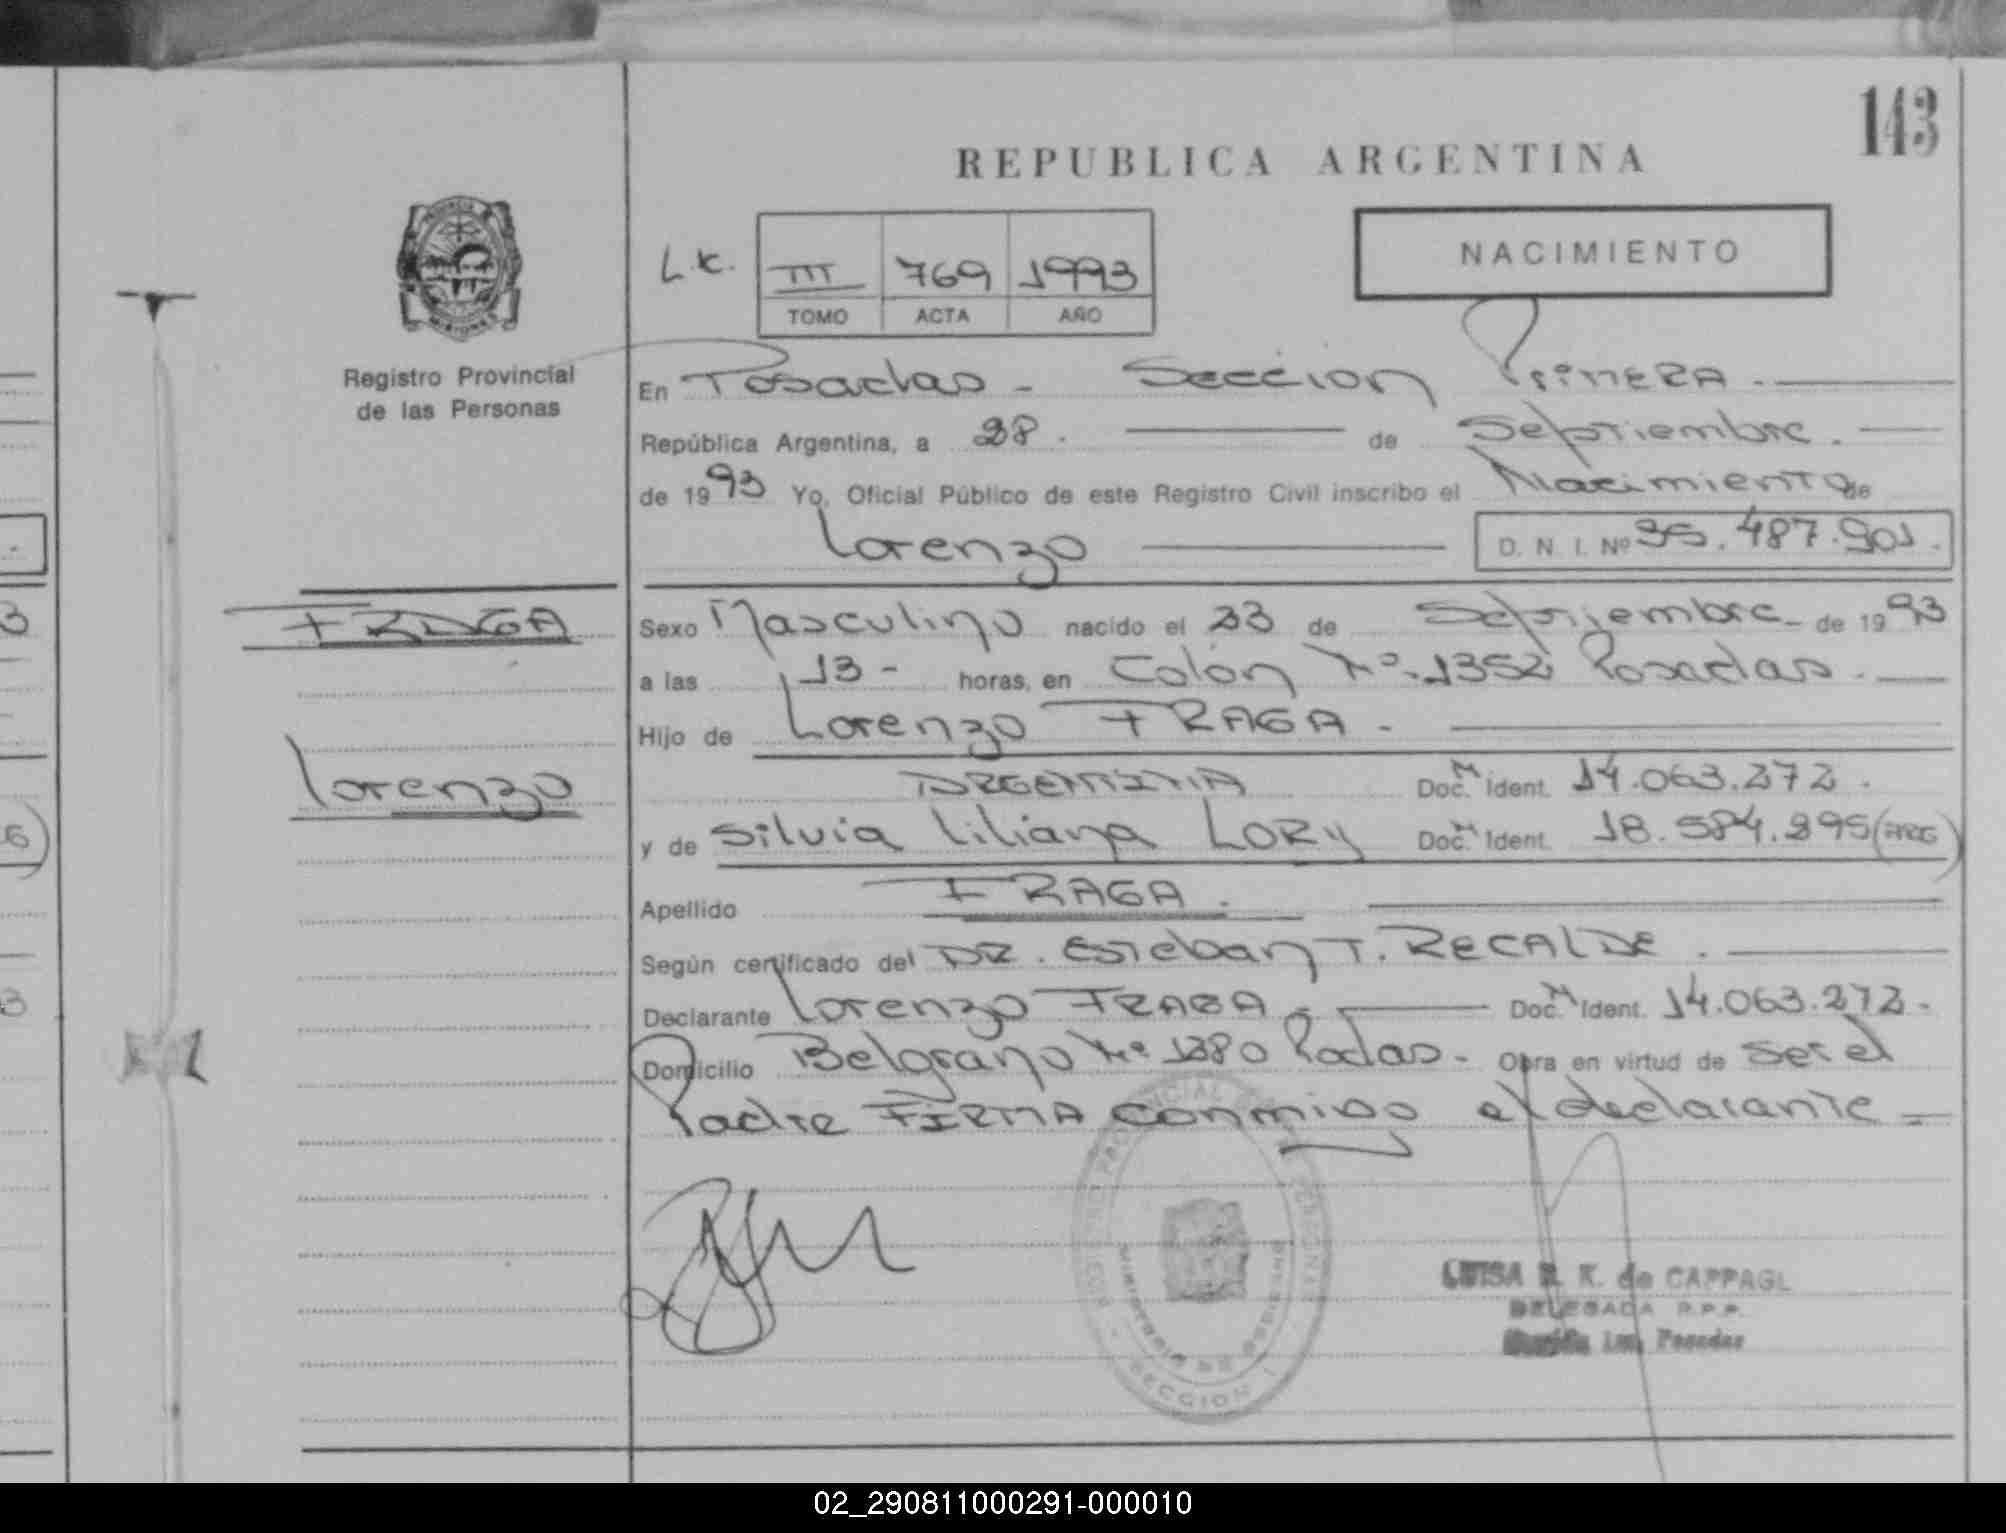 143
REPUBLICA ARGENTINA
L.K. III 769 1993
TOMO ACTA AÑO
NACIMIENTO
Registro Provincial
de las Personas
En Posadas - Sección Primera.
República Argentina, a 28. de Septiembre.
de 1993 Yo, Oficial Público de este Registro Civil inscribo el Nacimiento de
Lorenzo D. N. I. Nº 35.487.901.
FRAGA
Sexo Masculino nacido el 23 de Septiembre - de 1993
a las 13 - horas, en Colón Nº. 1352 Posadas.
Hijo de Lorenzo FRAGA -
Lorenzo
ARGENTINA Doc. M Ident. 14.063.272.
y de Silvia Liliana LORY Doc. M Ident. 18.584.895 (ARG)
Apellido FRAGA.
Según certificado del DR. Esteban T. RECALDE.
Declarante Lorenzo FRAGA - Doc. M Ident. 14.063.272.
Domicilio Belgrano Nº 1380 Podas. Obra en virtud de ser el
Padre FIRMA conmigo el declarante -
MINISTERIO DE GOBIERNO
SECCION 1
LUISA R. K. de CAPPAGL
DELEGADA R.P.P.
Posadas
02_290811000291-000010